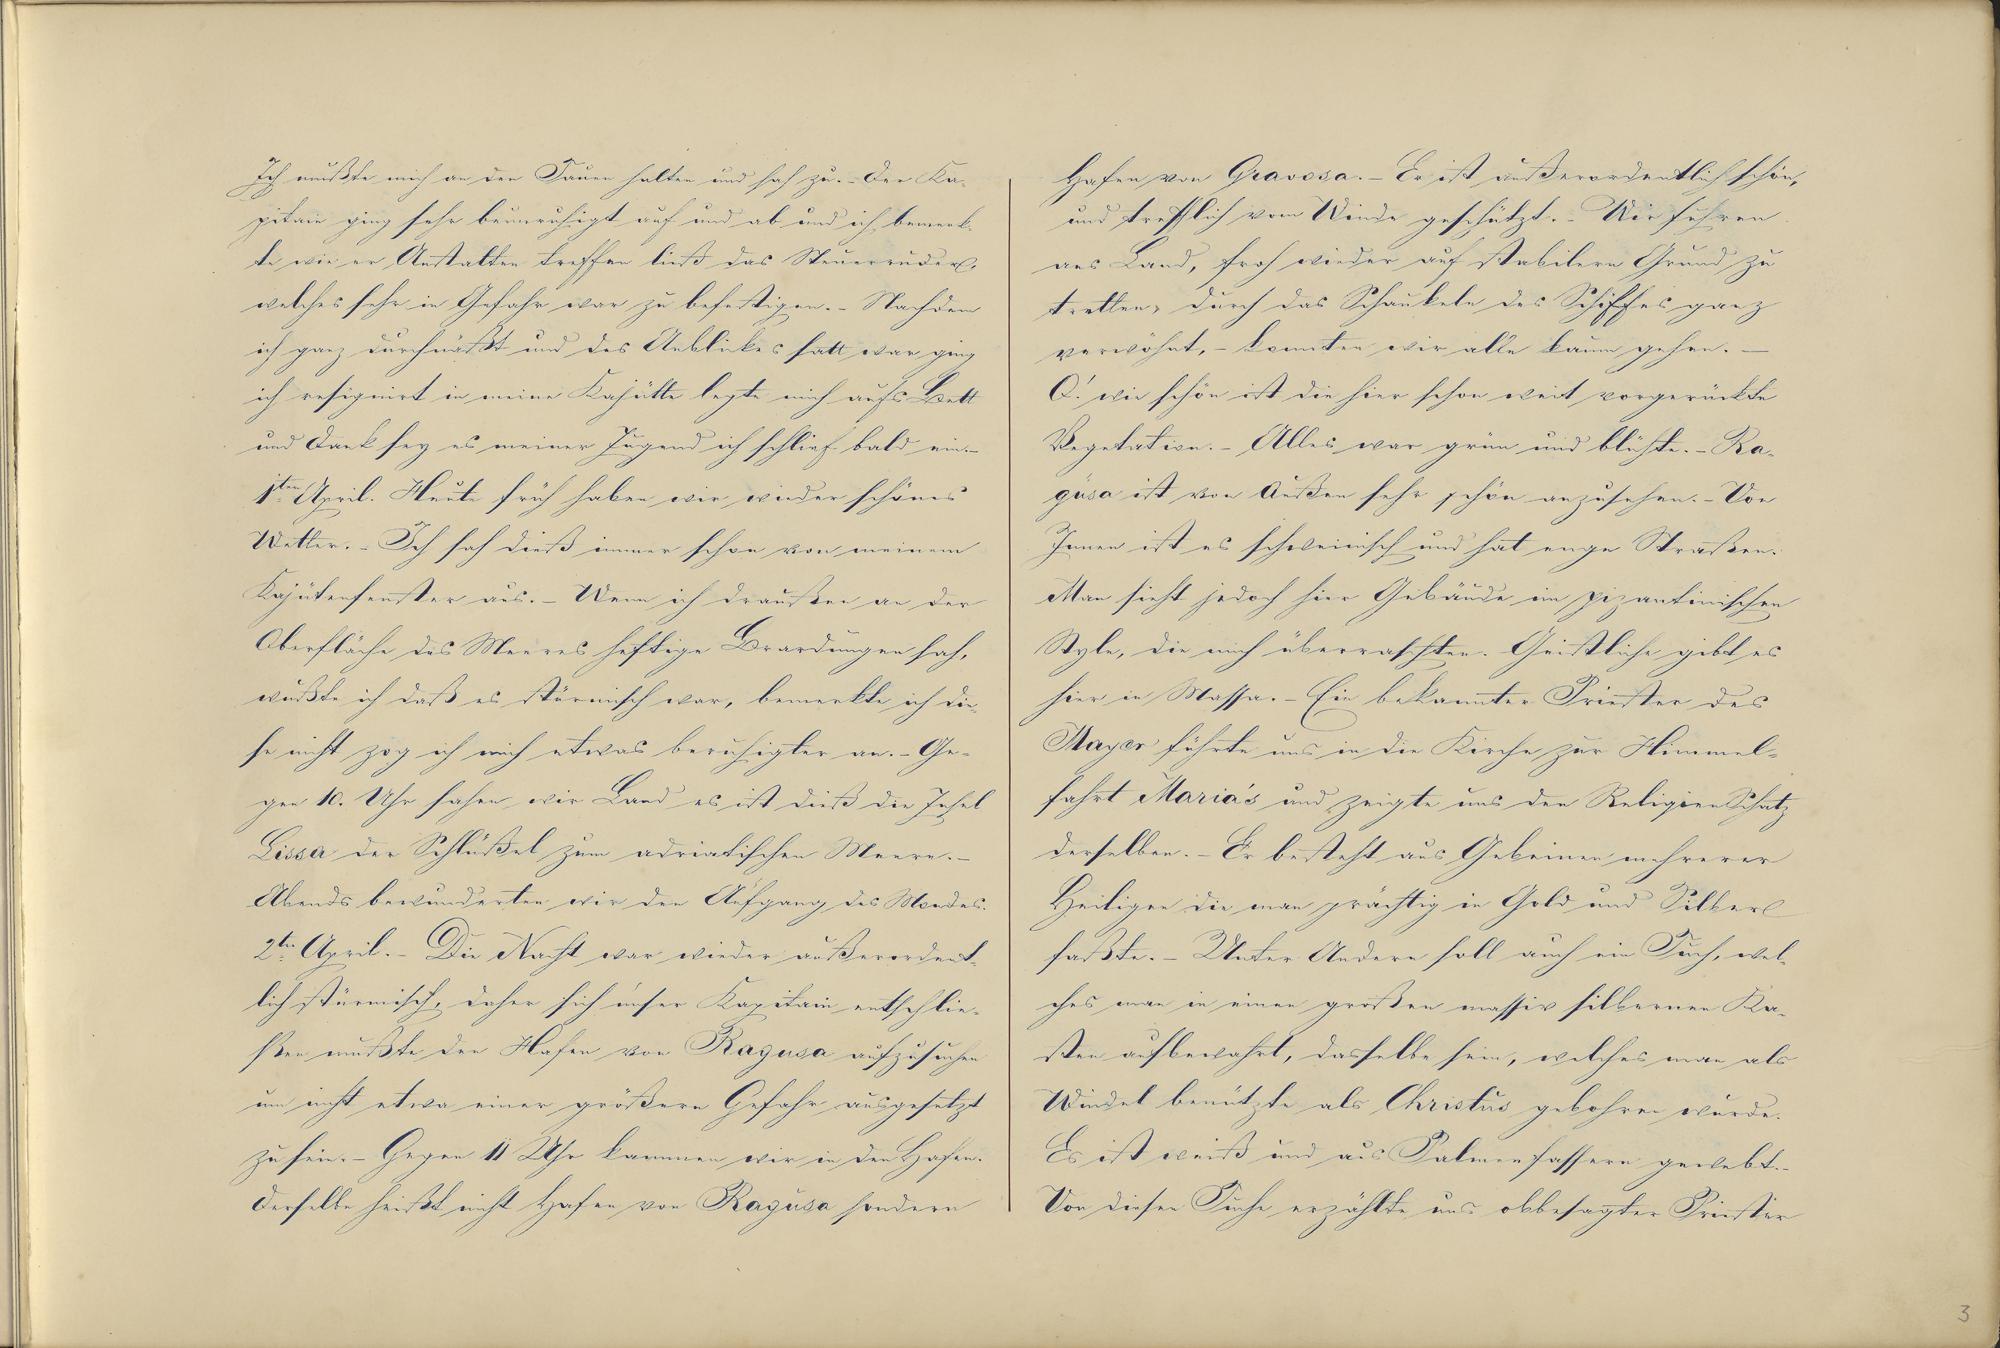 Ich mußte mich an den Tauen halten und sah zu.- Der Ka-
pitain ging sehr beunruhigt auf und ab und ich bemerk-
te wie er Anstalten treffen ließ das Steuerruder,
welches sehr in Gefahr war zu befestigen.- Nachdem
ich ganz durchnäßt und des Anblickes satt war ging
ich resignirt in meine Kajütte legte mich aufs Bett
und Dank sey es meiner Jugend ich schlief bald ein.-
1ten April. Heute früh haben wir wieder schönes
Wetter.- Ich sah dieß immer schon von meinem
Kajütenfenster aus.- Wenn ich draußen an der
Oberfläche des Meeres heftige Brardungen sah,
wußte ich daß es stürmisch war, bemerkte ich die-
se nicht zog ich mich etwas beruhigter an.- Ge-
gen 10. Uhr sahen wir Land es ist dieß die Insel
Lissa der Schlüßel zum adriatischen Meere.-
Abends bewunderten wir den Aufgang des Mondes.
2ten April.- Die Nacht war wieder außerordent-
lich stürmisch, daher sich unser Kapitain entschlie-
ßen mußte den Hafen von Ragusa aufzusuchen
um nicht etwa einer größern Gefahr ausgesetzt
zu sein.- Gegen 11 Uhr kammen wir in den Hafen.
Derselbe heißt nicht Hafen von Ragusa sondern
Hafen von Gravosa.- Er ist außerordentlich schön,
und trefflich vom Winde geschützt.- Wir fuhren
ans Land, froh wieder auf stabilern Grund zu
tretten, durch das Schaukeln des Schiffes ganz
verwöhnt,- konnten wir alle kaum gehen.-
O! wie schön ist die hier schon weit vorgerückte
Vegetation.- Alles war grün und blühte.- Ra-
gusa ist von Außen sehr schön anzusehen.- Von
Innen ist es schweinisch und hat enge Straßen.
Man sieht jedoch hier Gebäude im pizantinischen
Style, die mich überraschten. Geistliche gibt es
hier in Massa.- Ein bekannter Priester des
Mayer führte uns in die Kirche zur Himmel-
fahrt Maria's und zeigte uns den Religien Schatz
derselben.- Er besteht aus Gebeinen mehrerer
Heiligen die man prächtig in Gold und Silber
faßte.- Unter Andern soll auch ein Tuch, wel-
ches man in einen großen massiv silbernen Ka-
sten aufbewahrt, dasselbe sein, welches man als
Windel benützte als Christus gebohren wurde.
Es ist weiß und aus Palmenfassern gewebt.-
Von diesen Tuche erzählte uns obbesagter Priester
3